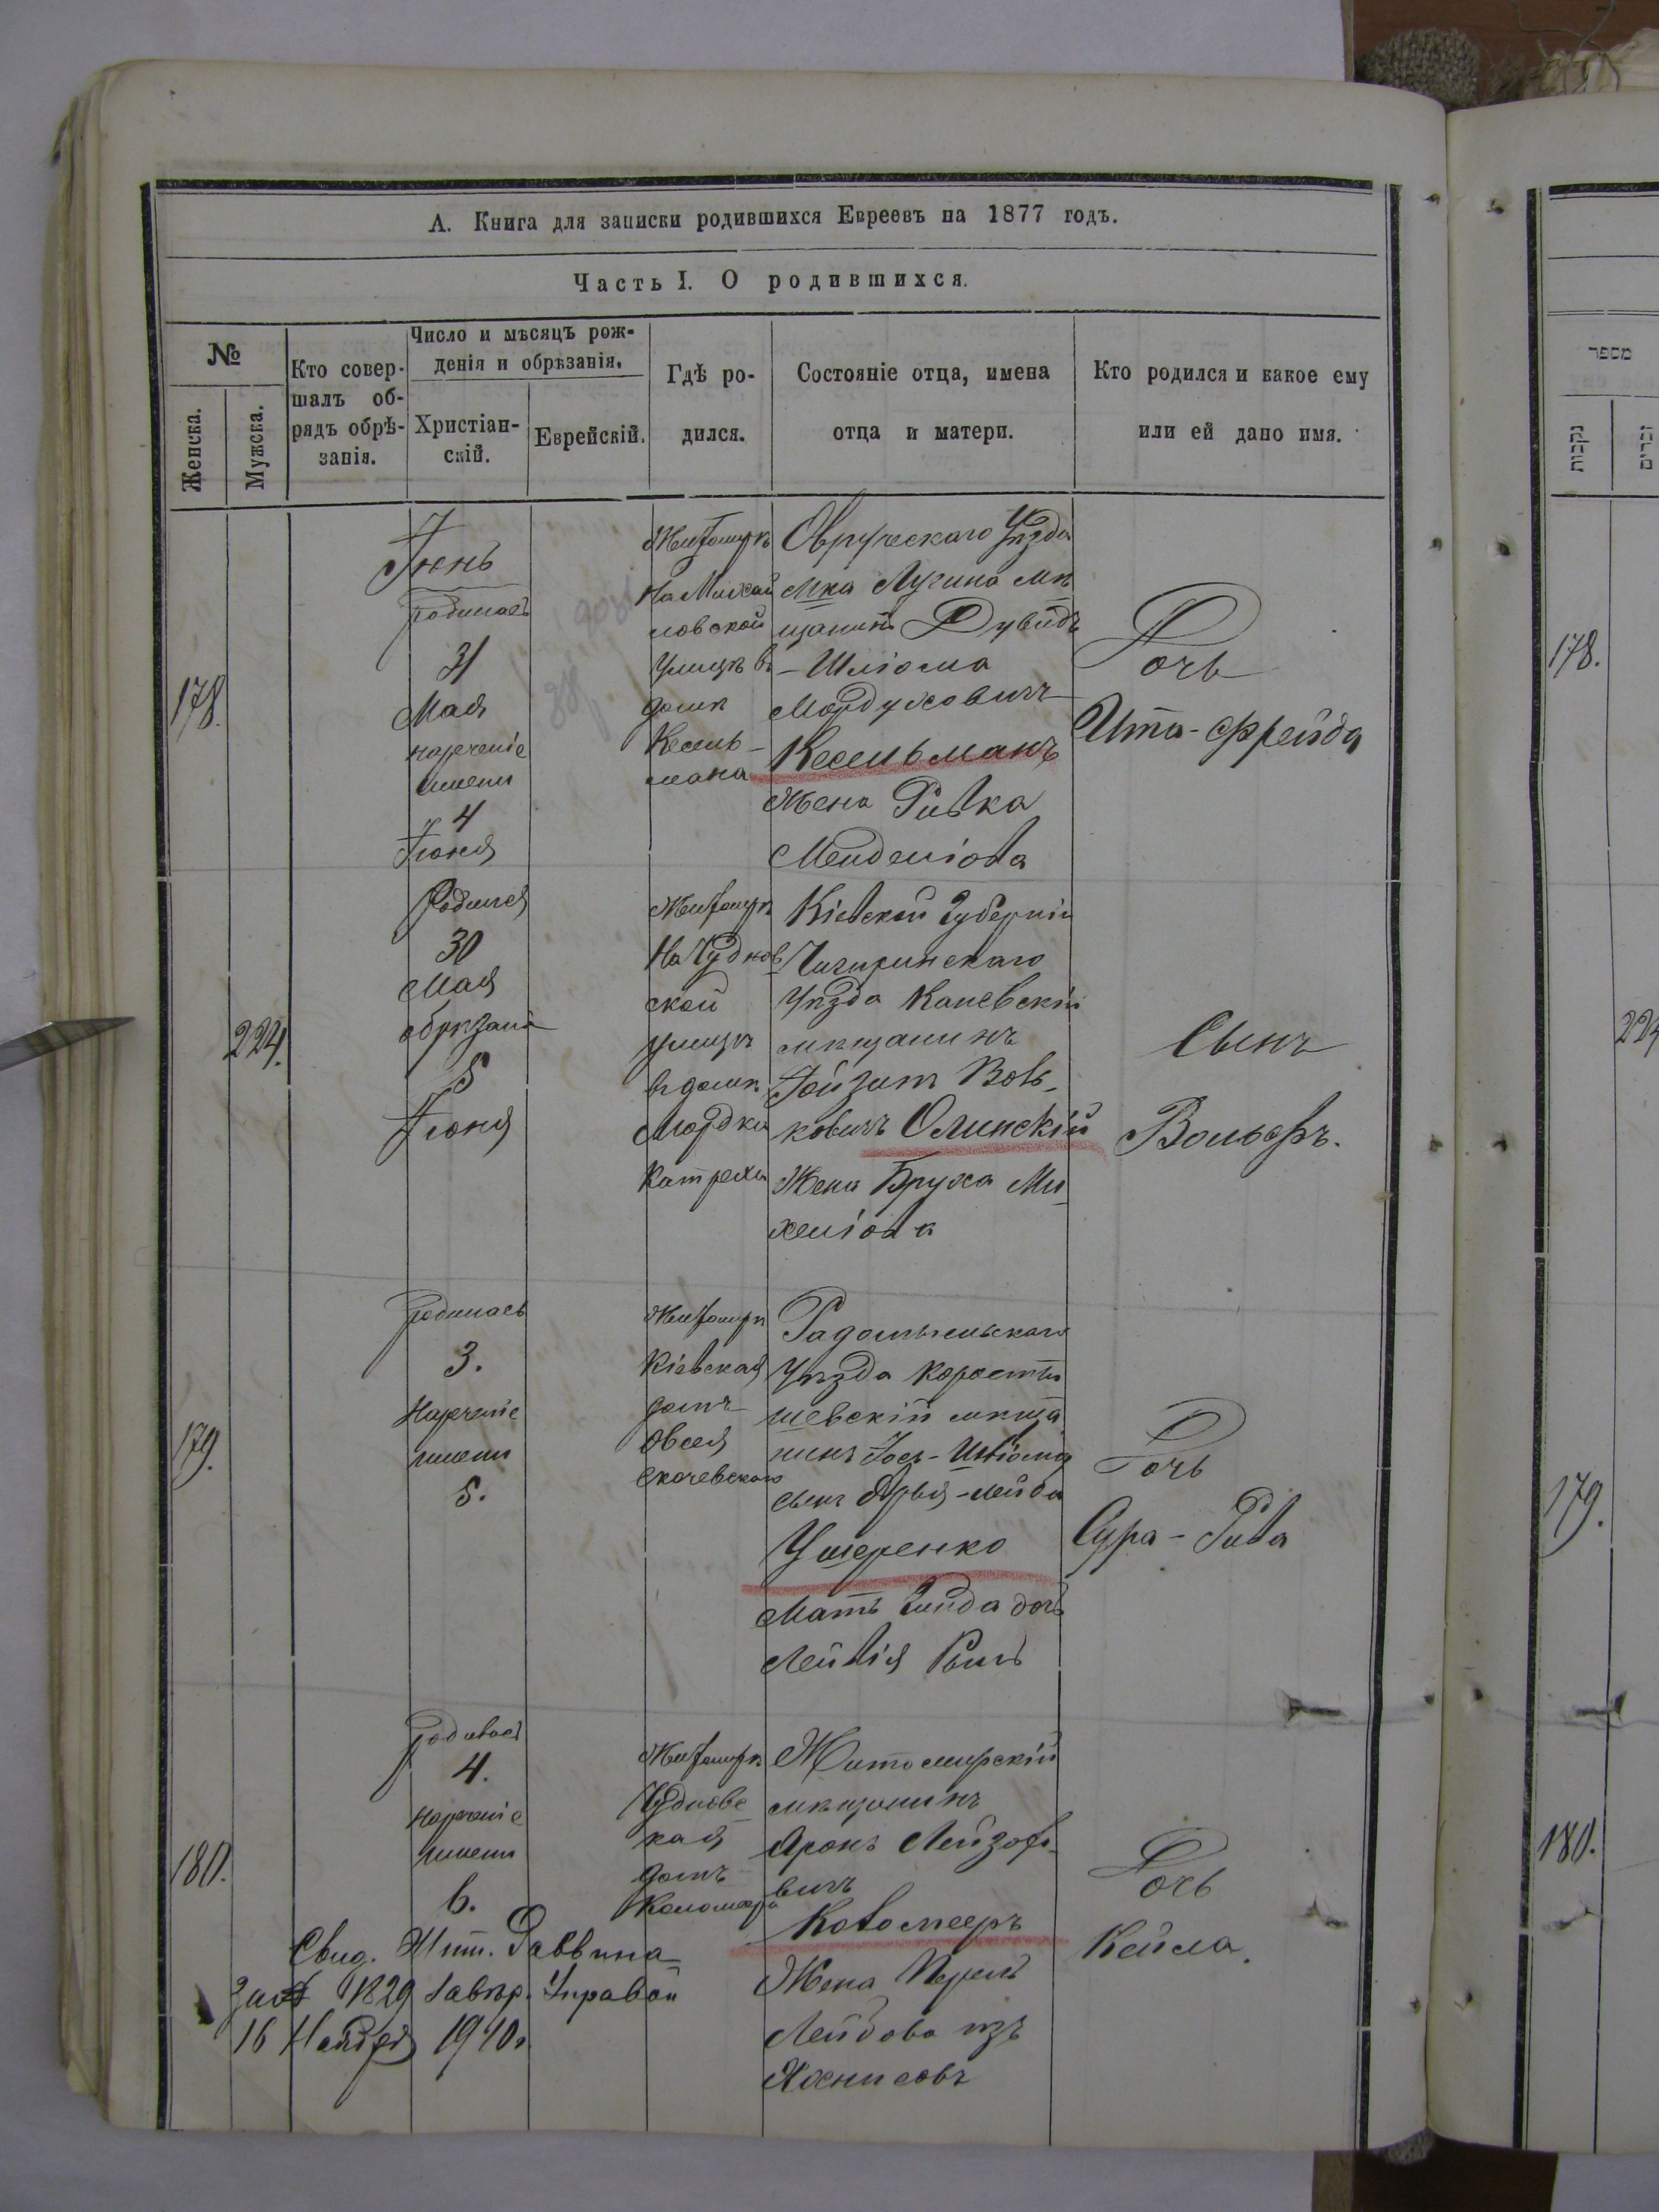 А. Книга для записки родившихся Евреевъ на 1877 годъ.
Часть I. О родившихся.
№
Женска.
Мужска.
Кто совер-
шалъ об-
рядъ обрѣ-
занія.
Число и мѣсяцъ рож-
денія и обрѣзанія.
Христіан-
скій.
Еврейскій.
Гдѣ ро-
дился.
Состояніе отца, имена
отца и матери.
Кто родился и какое ему
или ей дано имя.
178.
Іюнь
родилась
31
Мая
нареченіе
имени
4
Іюня
Житомиръ
На Михай
ловской
улицѣ въ
домѣ
Кесель-
мана
Овручскаго Уѣзда
мѣка Лугина мѣ
щанинъ Дувидъ
- Шліома
Мордуховичъ
Кесельманъ
Жена Ривка
Менделіова
Дочь
Ита-Фрейда
224.
Родился
30
Мая
обрѣзанъ
5
Іюня
Житомиръ
На Чуднов
ской
улицѣ
въ домѣ
Мордки
Кіевской Губерніи
Чигиринскаго
Уѣзда Каневскій
мѣщанинъ
Воль-
ковичъ Олинскій
Жена Бруха Ми-
хеліова
Сынъ
Вольфъ.
179.
родилась
3.
Нареченіе
имени
5.
Житомиръ
Кіевская
домъ
Овсея
Скочевскаго
Радомысльскаго
Уѣзда Корости
шевскій мѣща
нинъ Іось-Шліома
сынъ Арья-Лейба
Ушеренко
Мать Гинда дочь
Дочь
Сура-Рива
180.
родилась
4.
нареченіе
имени
6.
Житомиръ
Чудновс
кая
домъ
Житомирскій
мѣщанинъ
Аронъ Лейзоро-
вичъ
Коломееръ
Жена Перель
Лейбова изъ
Дочь
Кейла.
Свид. Жит. Раввина
за № 1829 завѣр. Управой
16 Ноября 1910 г.
מספר
נקבות
זכרים
178.
224
179.
180.